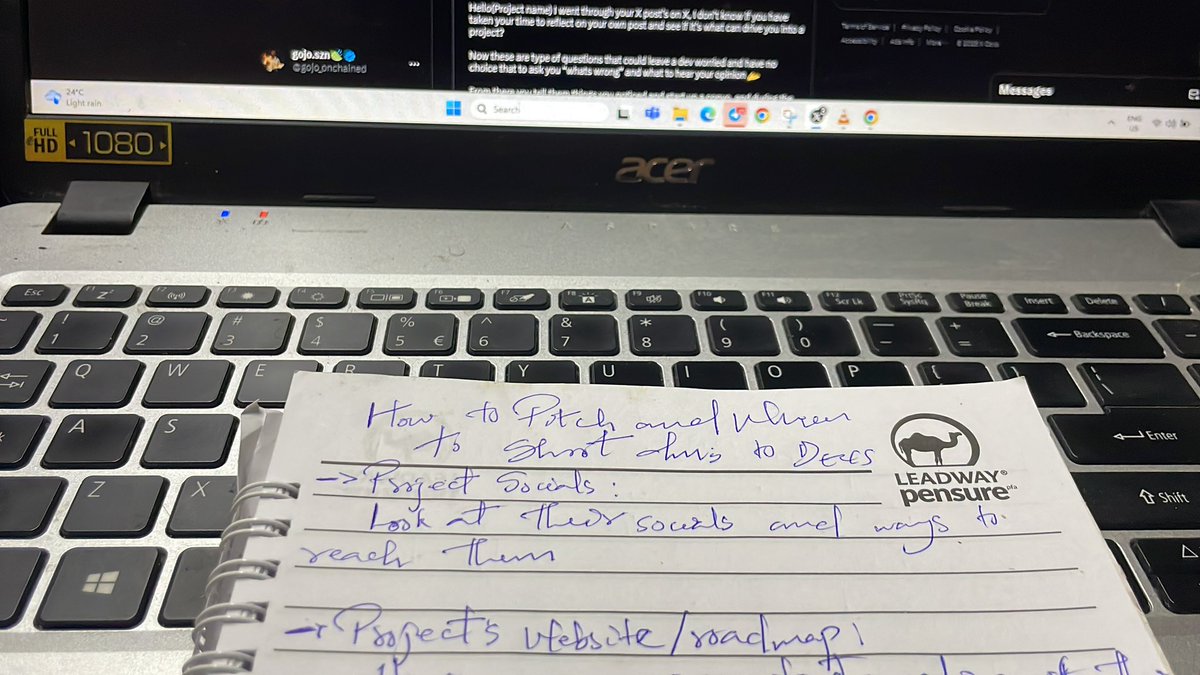 Hello(Project name) I went through your X post's on X, I don't know if you have
taken your time to reflect on your own post and see if it's what can drive you into a
project?
Now these are type of questions that could leave a dev worried and have no
choice that to ask you "whats wrong" and what to hear your opinion
gojo.szn
@gojo_onchained
...
Terms of Service | Privacy Policy | Cookie Policy |
Accessibility | Ads info | More
Messages
24°C
Light rain
Search
ENG
US
FULL
HD
1080
acer
Esc F1 F2 F3 F4 F5 F6 F7 F8 F9 F10 F11 F12 Scr Lk PrtSc SysRq Pause Break Insert Delete
! 1 @ 2 # 3 $ 4 % 5 € ^ 6 & 7 * 8 ( 9 ) 0 — - + = Backspace
Q W E R T Y U I O P { [ } ] | \
A S Enter
Z X Shift
How to Pitch and When
to Shoot dms to DEVS
LEADWAY®
pensure pfa
-> Project Socials :
Look at their socials and ways to
reach them
-> Project's website/roadmap: